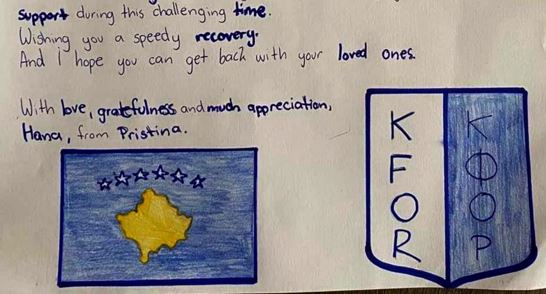 support during this challenging time.
Wishing you a speedy recovery.
And I hope you can get back with your loved ones.
With love, gratefulness and much appreciation,
Hana, from Pristina.
KFOR
КФОР